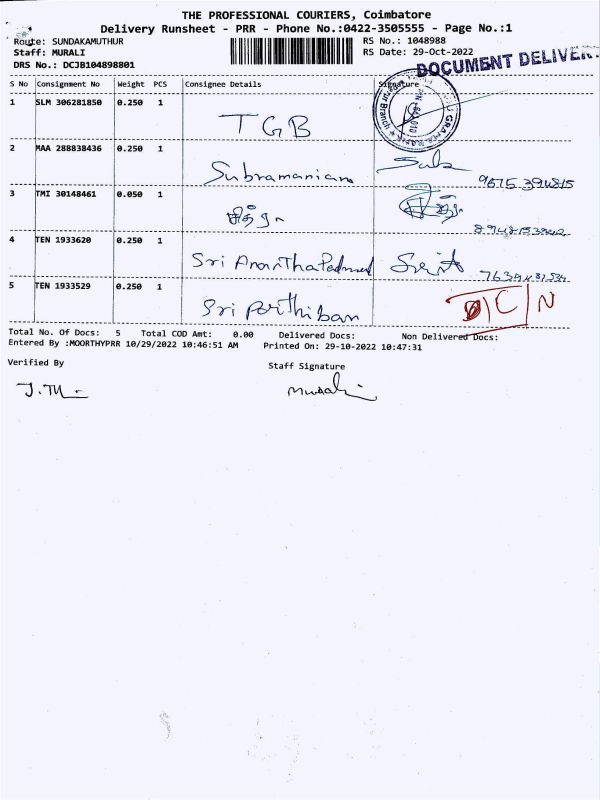 THE PROFESSIONAL COURIERS, Coimbatore
Delivery Runsheet - PRR - Phone No.:0422-3505555 - Page No.:1
Route: SUNDAKAMUTHUR
RS No.: 1048988
Staff: MURALI
RS Date: 29-Oct-2022
DRS No.: DCJB104898801
DOCUMENT DELIVER
S No Consignment No Weight PCS Consignee Details Signature
1 SLM 306281850 0.250 1 TGB
2 MAA 288838436 0.250 1 Subramaniam
3 TMI 30148461 0.050 1 சித்ரா
4 TEN 1933620 0.250 1 Sri AnanthaPadmna
5 TEN 1933529 0.250 1 Sri Parthiban D/C/N
Total No. Of Docs: 5 Total COD Amt: 0.00 Delivered Docs: Non Delivered Docs:
Entered By :MOORTHYPRR 10/29/2022 10:46:51 AM Printed On: 29-10-2022 10:47:31
Verified By
Staff Signature
Murali